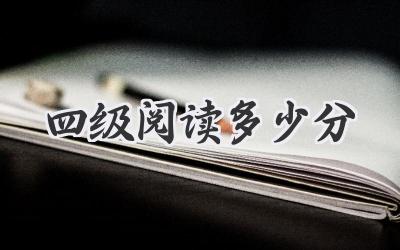 四级阅读多少分